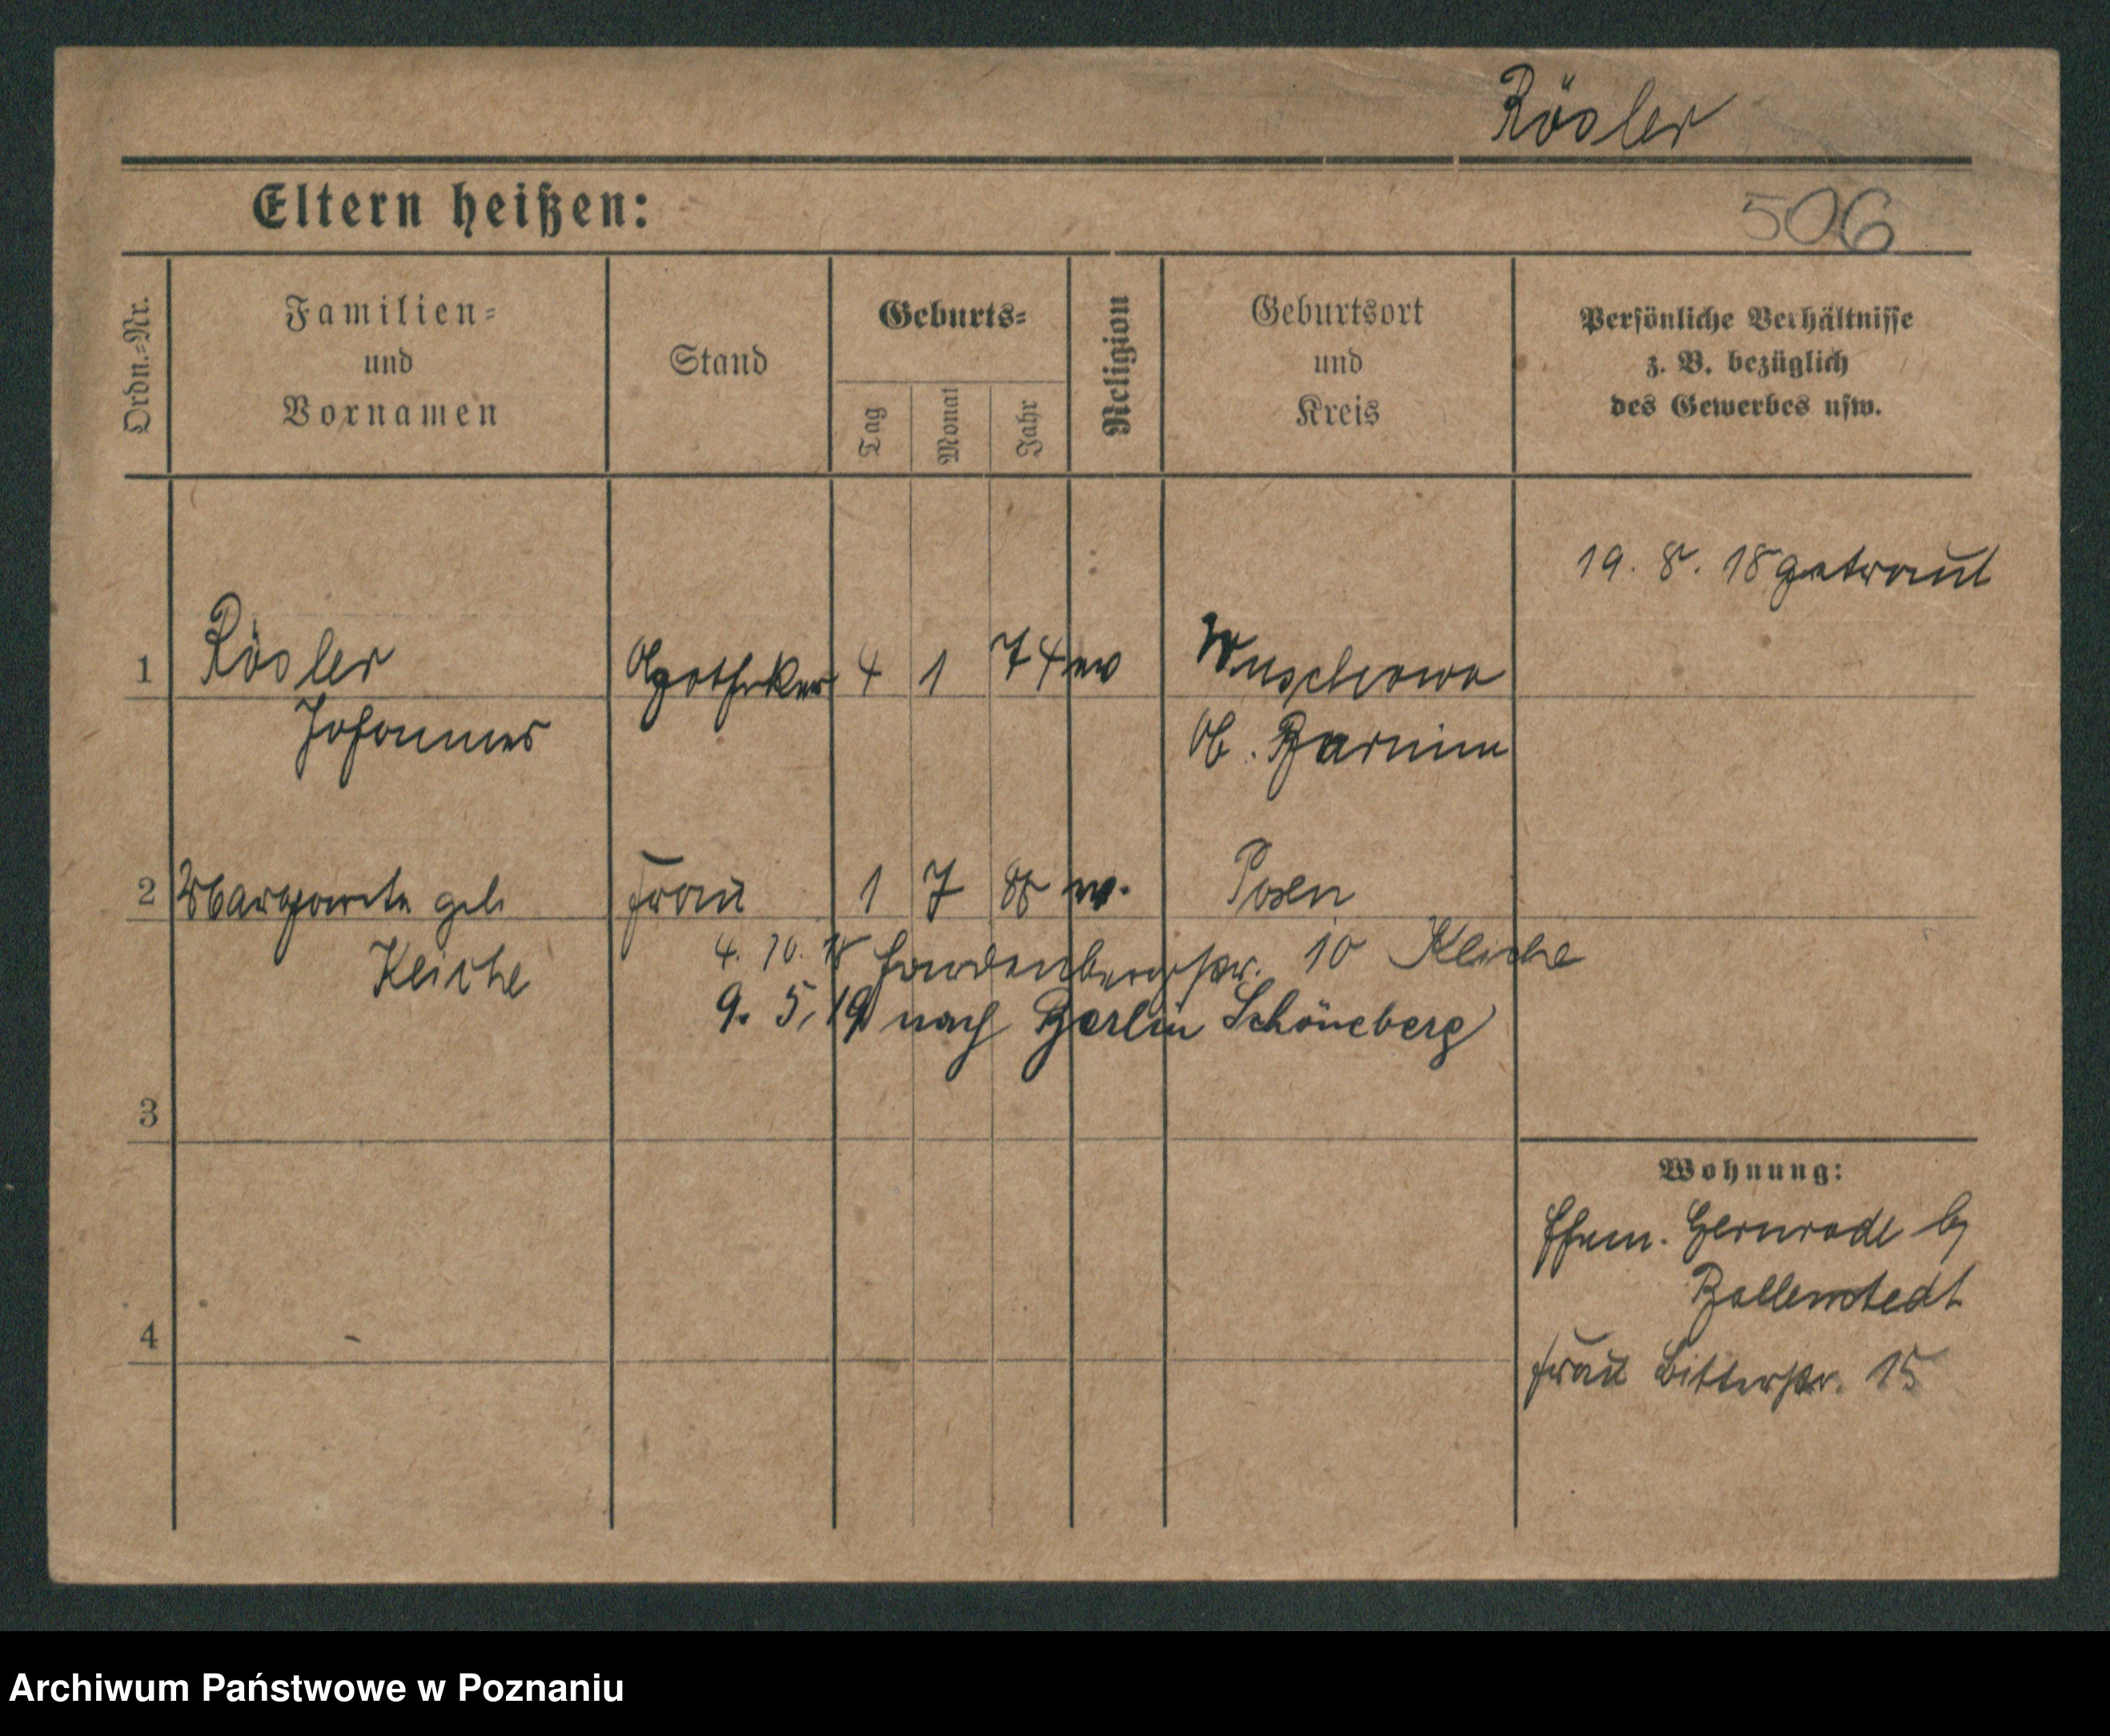 Rösler
Eltern heißen:
506
Ordn.-Nr.
Familien-
und
Vornamen
Stand
Geburts-
Tag
Monat
Jahr
Religion
Geburtsort
und
Kreis
Persönliche Verhältnisse
z. B. bezüglich
des Gewerbes usw.
19. 8. 18 getraut
1 Rösler Apotheker 4 1 74 ev Wuschewa
Johannes Ob. Barnim
2 Margarete geb Frau 1 7 88 ev. Posen
Kliche
4. 10. 18 Hardenbergstr. 10 Kliche
9. 5. 19 nach Berlin Schöneberg
3
Wohnung:
Ehem. Gernrode b/
Ballenstedt
4
Frau Bitterstr. 15
Archiwum Państwowe w Poznaniu